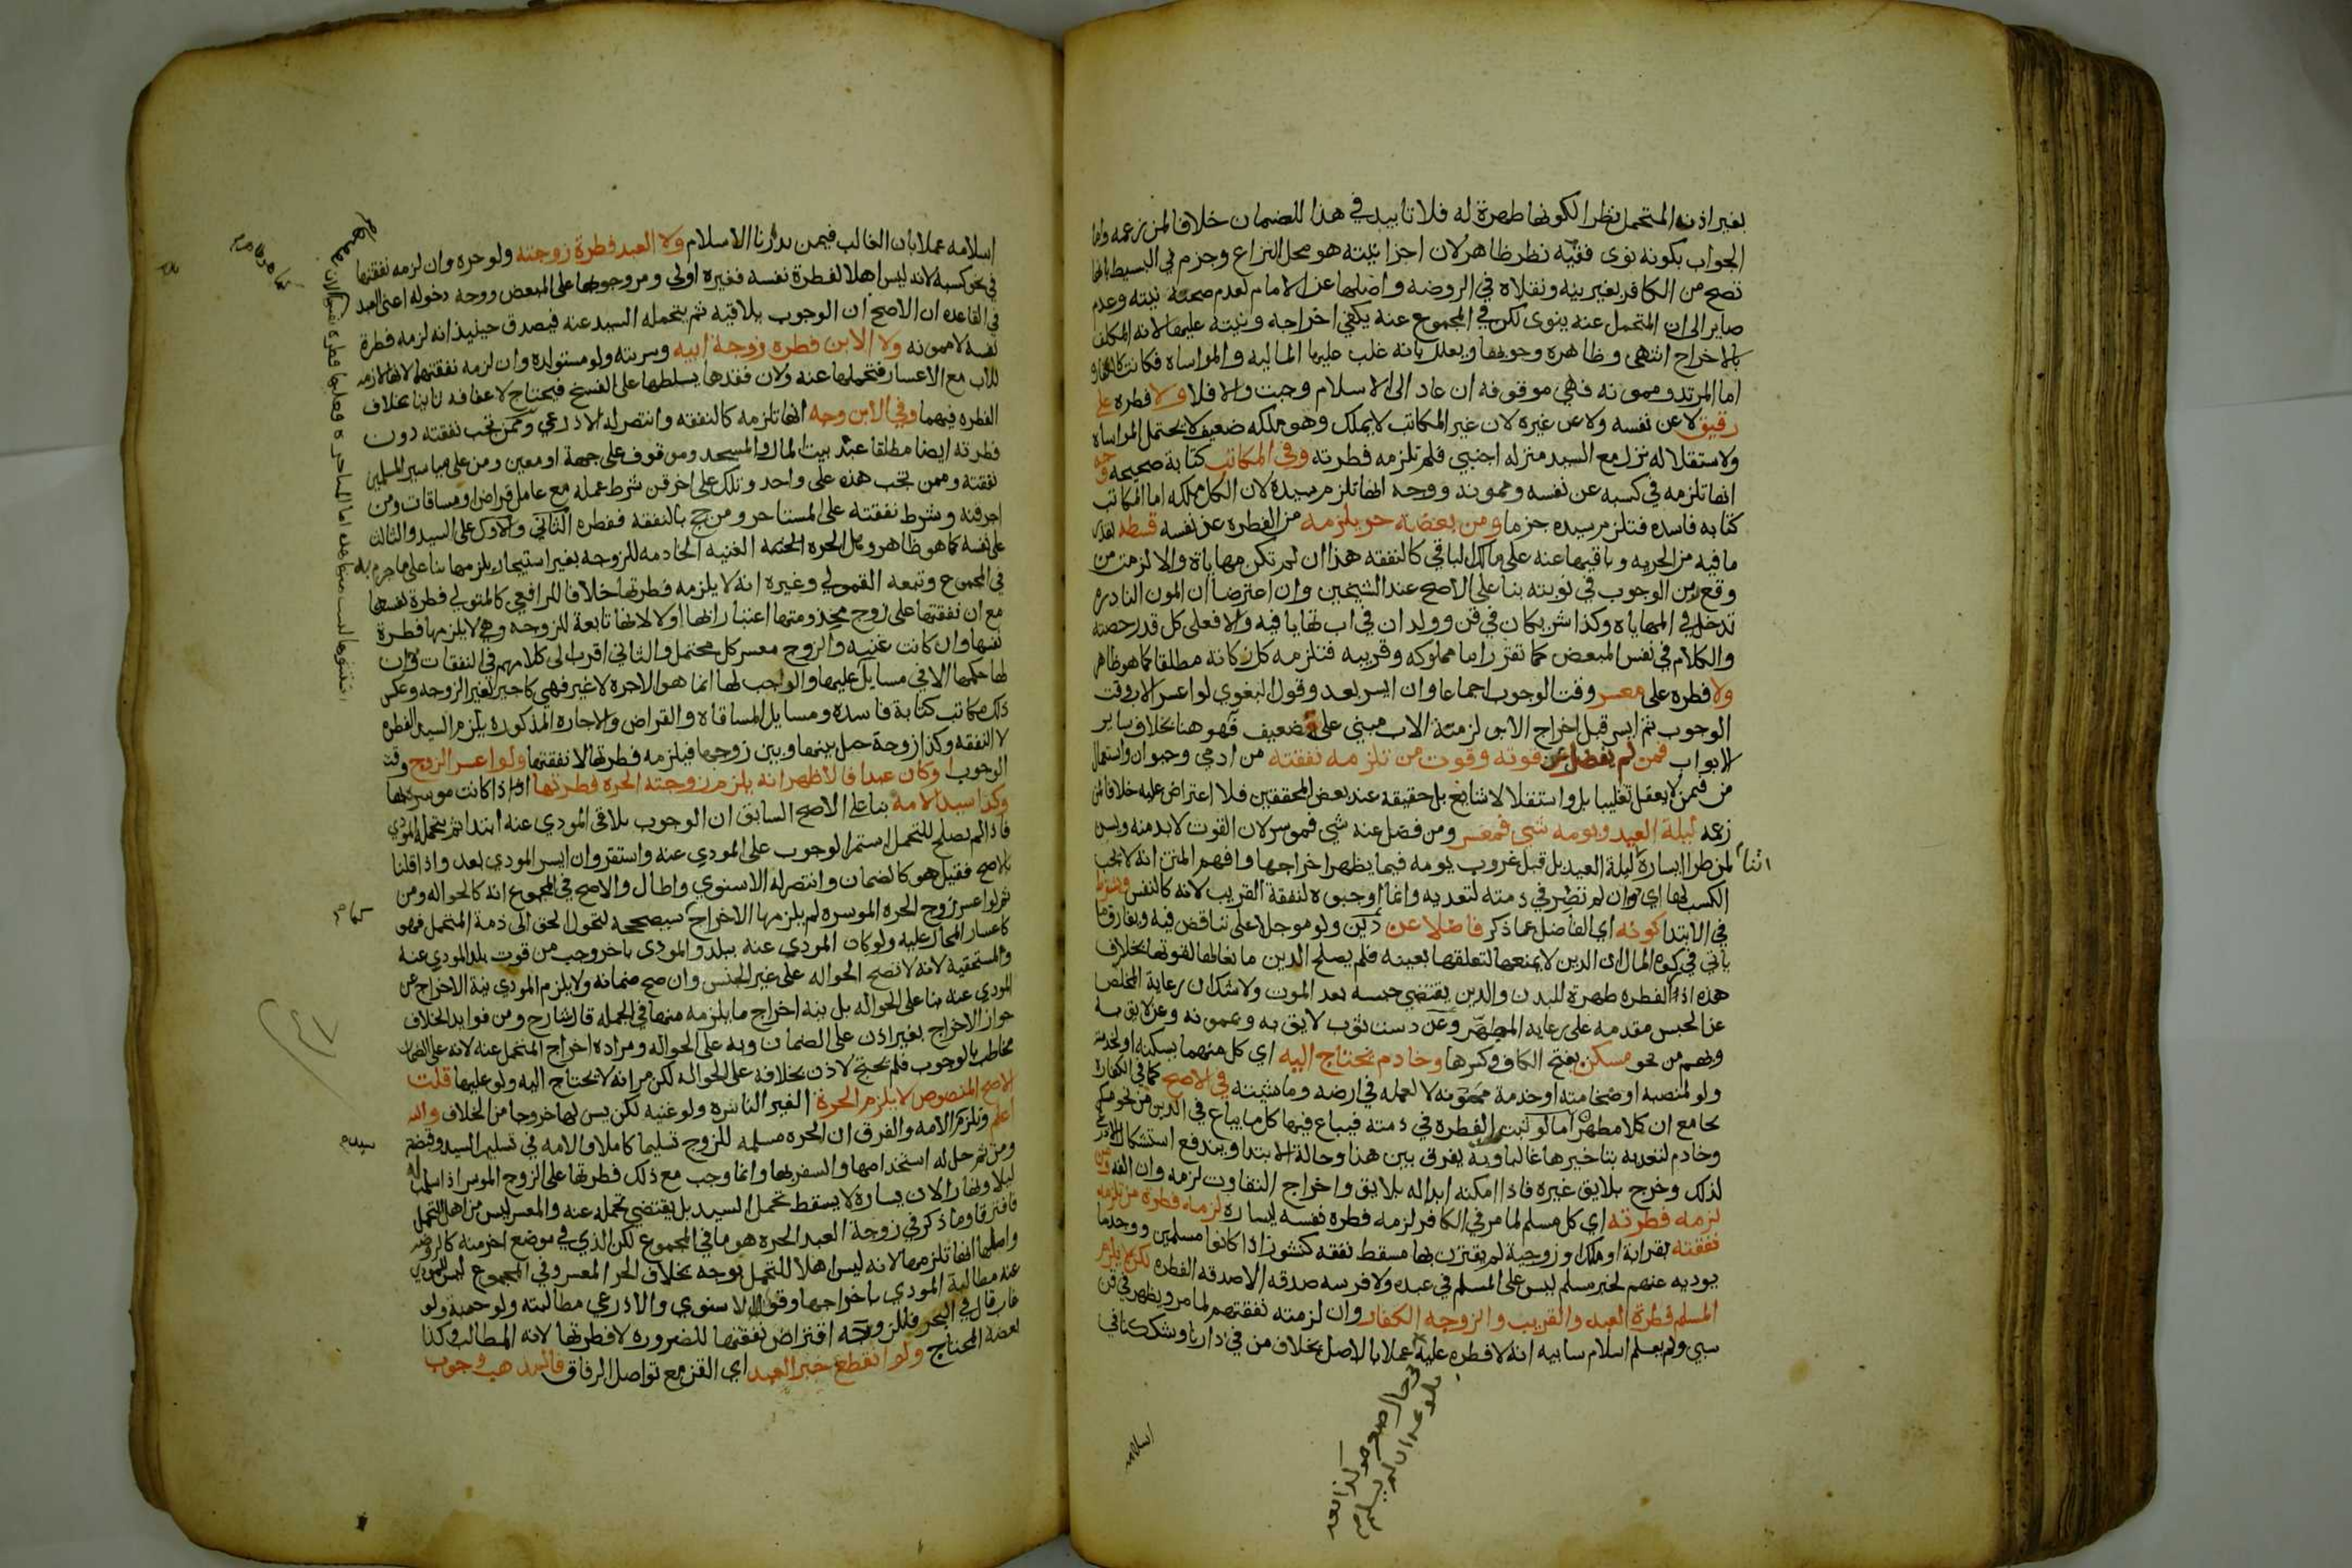 بغير اذن المتحمل نظرا لكونها طهرة له فلا تاييد في هذا للضمان خلافا لمن زعمه واما
الجواب بكونه نوى ففيه نظر ظاهر لان اجزا نيته هو محل النزاع وجزم في البسيط بانها
تصح من الكافر بغير نية ونقلاه في الروضه واصلها عن الامام لعدم صحة نيته وعدم
صاير الى ان المتحمل عنه ينوى لكن في المجموع عنه يكفي اخراجه ونيته عليها لانه المكلف
بالاخراج انتهى وظاهره وجوبها ويعلل بانه غلب عليها الماليه والمواساه فكانت
اما المرتد وممونه فهي موقوفه ان عاد الى الاسلام وجبت والا فلا ولا فطره على
رقيق لا عن نفسه ولا عن غيره لان غير المكاتب لا يملك وهو ملكه ضعيف لا يحتمل المواساه
ولاستقلاله نزل مع السيد منزله اجنبي فلم تلزمه فطرته وفي المكاتب كتابة صحيحه وجه
انها تلزمه في كسبه عن نفسه وممونه ووجه انها تلزم سيده لان الكل ملكه اما المكاتب
كتابه فاسده فتلزم سيده جزما ومن بعضه حر يلزمه من الفطره عن نفسه قسطه بقدر
ما فيه من الحريه وباقيها عنه على مالك الباقي كالنفقه هذا ان لم تكن مهاياة والا لزمت من
وقع زمن الوجوب في نوبته بنا على الاصح عند الشيخين وان اعترضا ان المون النادره
تدخل في المهاياه وكذا شريكان في قن وولدان في اب تهايا فيه والا فعلى كل قدر حصته
والكلام في نفس المبعض كما تقرر اما مملوكه وقريبه فتلزمه كل زكاته مطلقا كما هو ظاهر
ولا فطره على معسر وقت الوجوب اجماعا وان ايسر بعد وقول البغوي لو اعسر الاب وقت
الوجوب ثم ايسر قبل اخراج الابن لزمت الاب مبني على ضعيف فهو هنا بخلاف ساير
الابواب فمن لم يفضل عن قوته وقوت من تلزمه نفقته من ادمي وحيوان واستعمال
من فيمن لا يعقل تغليبا بل واستقلالا شايع بل حقيقه عند بعض المحققين فلا اعتراض عليه خلافا لمن
زعمه ليلة العيد ويومه شي فمعسر ومن فضل عنه شي فموسر لان القوت لا بد منه ويسن
لمن طرا يساره اثنا ليلة العيد بل قبل غروب يومه فيما يظهر اخراجها وافهم المتن انه لا يجب
الكسب لها اي وان لم تصر في ذمته لتعديه وانما اوجبوه لنفقة القريب لانه كالنفس ويشترط
في الابتدا كونه اي الفاضل عما ذكر فاضلا عن دين ولو موجلا على تناقض فيه ويفارق ما
ياتي في زكوة المال ان الدين لا يمنعها لتعلقها بعينه فلم يصلح الدين مانعا لها لقوتها بخلاف
هذه اذ الفطره طهرة للبدن والدين يقتضي حبسه بعد الموت ولا شك ان رعاية المخلص
عن الحبس مقدمه على رعايه المطهر وعن دست ثوب لايق به وبممونه وعن لايق به
وبهم من نحو مسكن بفتح الكاف وكسرها وخادم يحتاج اليه اي كل منهما بسكنه او لخدمته
ولو لمنصبه او ضخامته او خدمة ممونه لا لعمله في ارضه وماشيته في الاصح كما في الكفارة
بجامع ان كلا مطهر اما لو ثبت الفطره في ذمته فيباع فيها كل ما يباع في الدين من نحو مسكن
وخادم لتعديه بتاخيرها غالبا وبه يفرق بين هنا وحالة الابتدا ويندفع استشكال الاذرعي
لذلك وخرج بلايق غيره فاذا امكنه ابداله بلايق واخراج التفاوت لزمه وان الفه ومن
لزمه فطرته اي كل مسلم لما مر في الكافر لزمه فطره نفسه ليساره لزمه فطرة من تلزمه
نفقته بقرابة او ملك او زوجية لم يقترن بها مسقط نفقه كنشوز اذا كانوا مسلمين ووجد ما
يوديه عنهم لخبر مسلم ليس على المسلم في عبده ولا فرسه صدقه الا صدقه الفطره لكن لا يلزم
المسلم فطرة العبد والقريب والزوجه الكفار وان لزمته نفقتهم لما مر ويظهر في قن
سبي ولم يعلم اسلام سابيه انه لا فطره عليه عملا بالاصل بخلاف من في دارنا وشك في
اسلامه
اسلامه عملا بان الغالب فيمن بدارنا الاسلام ولا العبد فطرة زوجته ولو حره وان لزمه نفقتها
في نحو كسبه لانه ليس اهلا لفطرة نفسه فغيره اولى ومر وجوبها على المبعض ووجه دخوله اعني العبد
في القاعده ان الاصح ان الوجوب يلاقيه ثم يتحمله السيد عنه فيصدق حينيذ انه لزمه فطرة
نفسه لا ممونه ولا الابن فطره زوجة ابيه وسريته ولو مستولده وان لزمه نفقتهما لانها لازمه
للاب مع الاعسار فتحملها عنه ولان فقدها يسلطها على الفسخ فيحتاج لاعفافه ثانيا بخلاف
الفطره فيهما وفي الابن وجه انها تلزمه كالنفقه وانتصر له الاذرعي وممن تجب نفقته دون
فطرته ايضا مطلقا عبد بيت المال والمسجد وموقوف على جهة او معين ومن على مياسير المسلمين
نفقته وممن تجب هذه على واحد وتلك على اخر قن شرط عمله مع عامل قراض او مساقات ومن
اجر قنه وشرط نفقته على المستاجر ومن حج بالنفقه ففطره الثاني والاول على السيد والثالث
على نفسه كما هو ظاهر ومثل الحره الغنيه الخادمه للزوجه بغير استيجار يلزمها بنا على ما جزم به
في المجموع وتبعه القمولي وغيره انه لا يلزمه فطرتها خلافا للرافعي كالمتولي فطرة نفسها
مع ان نفقتها على زوج مخدومتها اعتبارا بها اولا لانها تابعة للزوجه وهي لا يلزمها فطرة
نفسها وان كانت غنيه والزوج معسر كل محتمل والثاني اقرب الى كلامهم في النفقات وان
لها حكمها الا في مسايل عليها والواجب لها انما هو الاجره لا غير فهي كاجير لغير الزوجه وعكس
ذلك مكاتب كتابة فاسده ومسايل المساقاه والقراض والاجاره المذكوره يلزم السيد الفطره
لا النفقه وكذا زوجة حيل بينها وبين زوجها فيلزمه فطرتها لا نفقتها ولو اعسر الزوج وقت
الوجوب او كان عبدا فالاظهر انه يلزم زوجته الحره فطرتها اذا كانت موسره بها
وكذا سيد الامه بنا على الاصح السابق ان الوجوب يلاقي المودي عنه ابتدا ثم يتحمله المودي
فاذا لم يصلح للتحمل استمر الوجوب على المودي عنه واستقر وان ايسر المودي بعد واذا قلنا
بالاصح فقيل هو كالضمان وانتصر له الاسنوي واطال والاصح في المجموع انه كالحواله ومن
ثم لو اعسر زوج الحره الموسره لم يلزمها الاخراج لتحول الحق الى ذمة المتحمل فهو
كاعسار المحال عليه ولو كان المودي عنه ببلد والمودى باخر وجب من قوت بلد المودي عنه
ولمستحقيه لانه لا تصح الحواله على غير الجنس وان صح ضمانه ولا يلزم المودي نية الاخراج عن
المودي عنه بنا على الحواله بل نية اخراج ما يلزمه منها في الجمله قال شارح ومن فوايد الخلاف
جواز الاخراج بغير اذن على الضمان وبه على الحواله ومراده اخراج المتحمل عنه لانه على الضمان
مخاطب بالوجوب فلم يحتج لاذن بخلافه على الحواله لكن مر انه لا يحتاج اليه ولو عليها قلت
الاصح المنصوص لا يلزم الحرة الغير الناشزه ولو غنيه لكن يسن لها خروجا من الخلاف والله
اعلم وتلزم الامه والفرق ان الحره مسلمه للزوج تسليما كاملا والامه في تسليم السيد وقبضه
ومن ثم حل له استخدامها والسفر بها وانما وجب مع ذلك فطرتها على الزوج الموسر اذا سلمت له
ليلا ونهارا لان يساره لا يسقط تحمل السيد بل يقتضي تحمله عنه والمعسر ليس من اهل التحمل
فافترقا وما ذكر في زوجة العبد الحره هو ما في المجموع لكن الذي في موضع اخر منه كالروضه
واصلها انها تلزمها لانه ليس اهلا للتحمل بوجه بخلاف الحر المعسر وفي المجموع ليس للمودي
عنه مطالبة المودي باخراجها وقول الاسنوي والاذرعي مطالبته ولو حسبة ولو
غاب قال في البحر فللزوجه اقتراض نفقتها للضروره لا فطرتها لانه المطالب وكذا
بعضه المحتاج ولو انقطع خبر العبد اي القن مع تواصل الرفاق فالمذهب وجوب